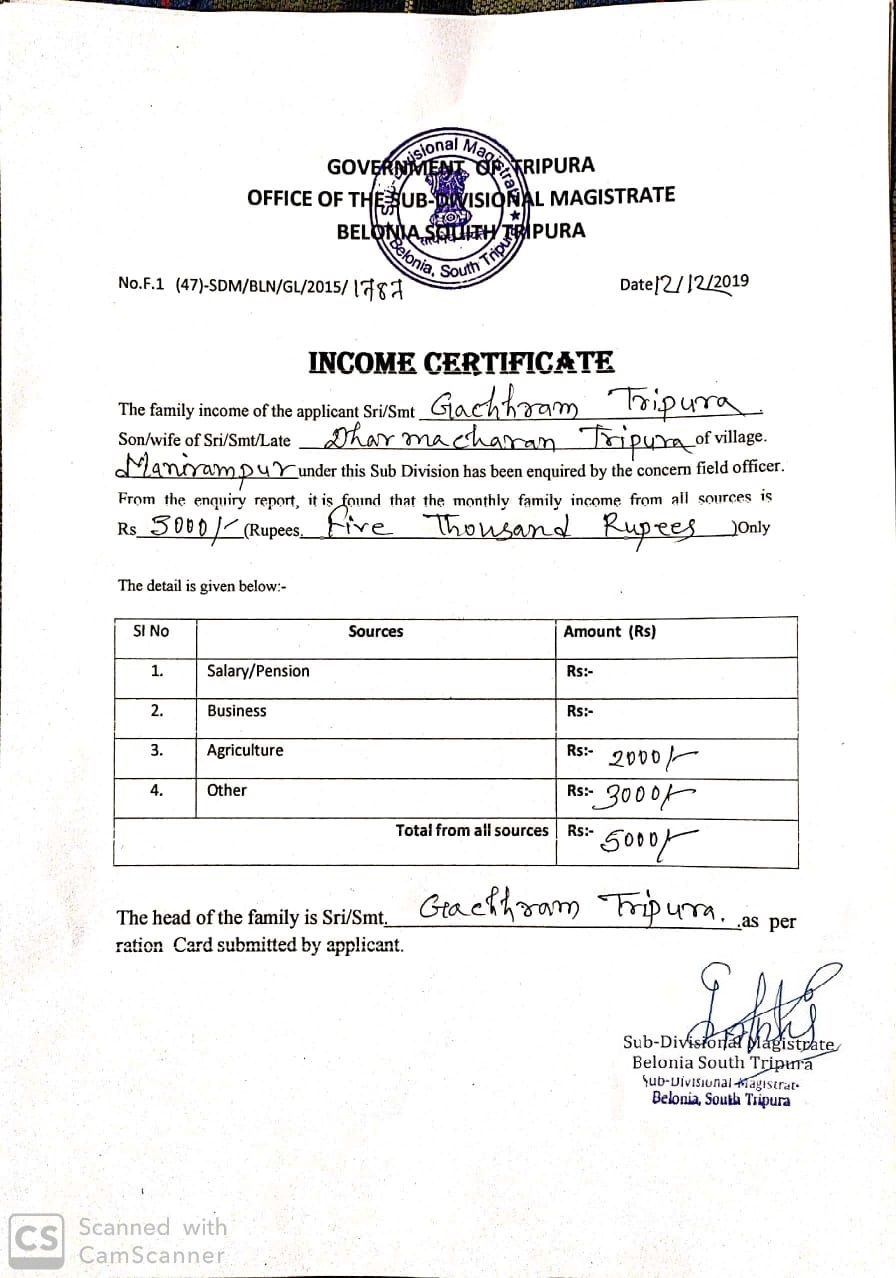 GOVERNMENT OF TRIPURA
OFFICE OF THE SUB-DIVISIONAL MAGISTRATE
BELONIA SOUTH TRIPURA
Sub-Divisional Magistrate
Belonia, South Tripura
No.F.1 (47)-SDM/BLN/GL/2015/ 1787 Date 12/12/2019
INCOME CERTIFICATE
The family income of the applicant Sri/Smt Gachhram Tripura.
Son/wife of Sri/Smt/Late Dharmacharan Tripura of village.
Manirampur under this Sub Division has been enquired by the concern field officer.
From the enquiry report, it is found that the monthly family income from all sources is
Rs 5000/- (Rupees. Five Thousand Rupees )Only
The detail is given below:-
Sl No Sources Amount (Rs)
1. Salary/Pension Rs:-
2. Business Rs:-
3. Agriculture Rs:- 2000/-
4. Other Rs:- 3000/-
Total from all sources Rs:- 5000/-
The head of the family is Sri/Smt. Gachhram Tripura. .as per
ration Card submitted by applicant.
Sub-Divisional Magistrate
Belonia South Tripura
Sub-Divisional Magistrate
Belonia, South Tripura
CS Scanned with
CamScanner